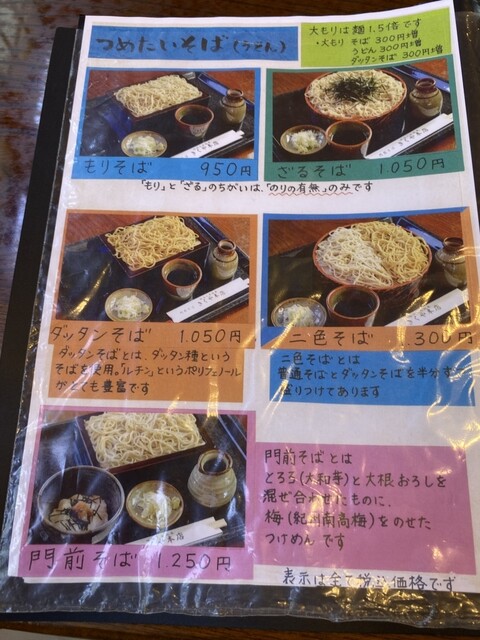 つめたいそば(うどん)
大もりは麺1.5倍です
・大もり そば 300円増
うどん 300円増
ダッタンそば 300円増
もりそば 950円
ざるそば 1.050円
「もり」と「ざる」のちがいは、「のりの有無」のみです
ダッタンそば 1.050円
二色そば 1.300円
ダッタンそばとは、ダッタン種という
そばを使用。「ルチン」というポリフェノール
がとても豊富です
二色そばとは
普通そばとダッタンそばを半分ずつ
盛りつけてあります
門前そば 1.250円
門前そばとは
とろろ(大和芋)と大根おろしを
混ぜ合わせたものに、
梅(紀州南高梅)をのせた
つけめんです
表示は全て税込価格です